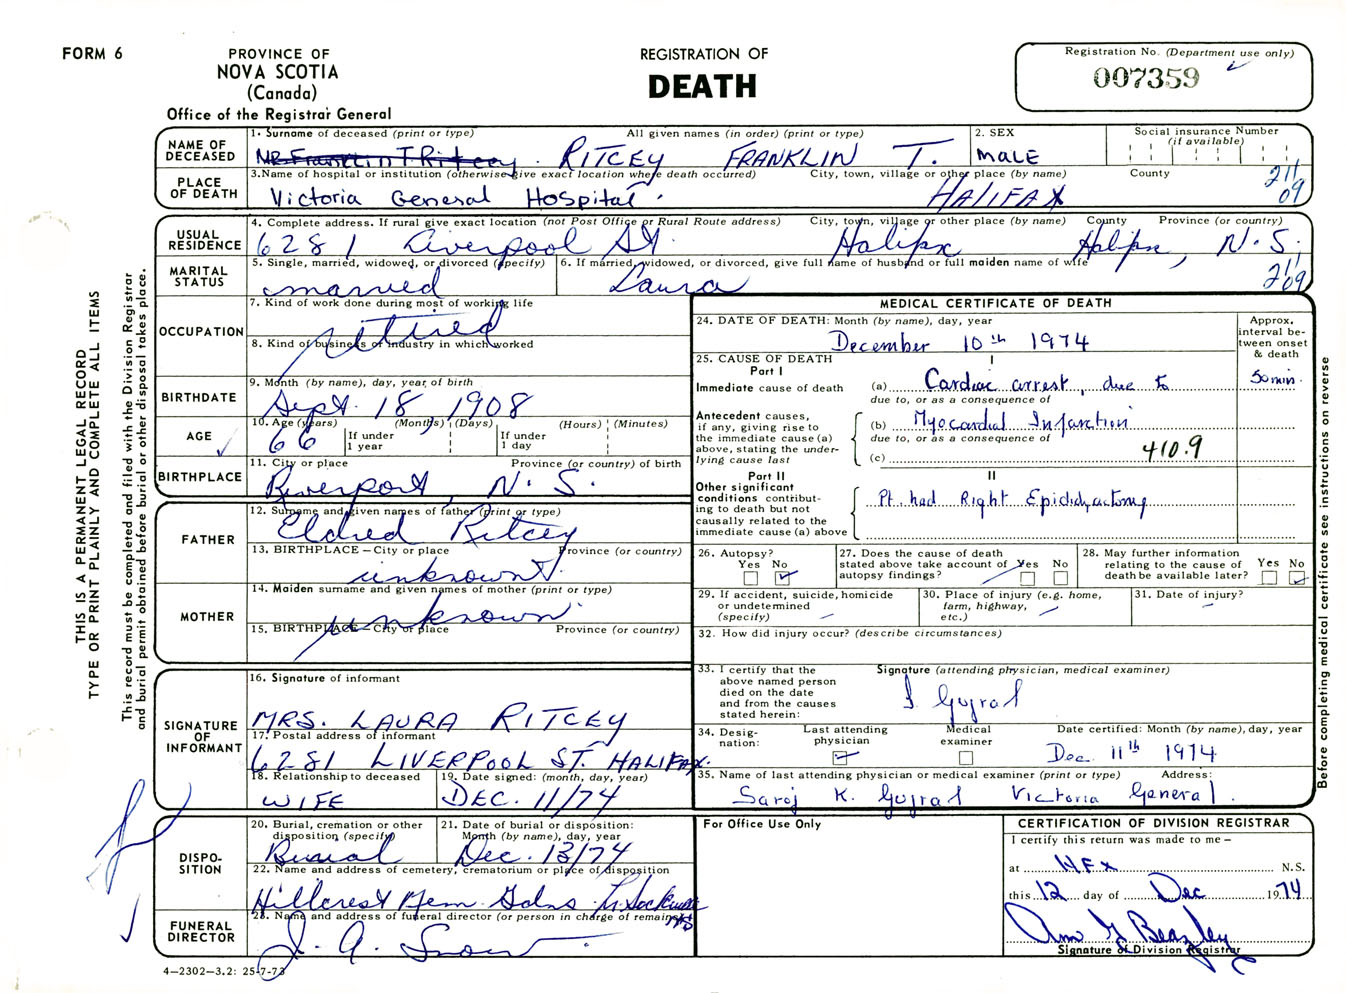 FORM 6
PROVINCE OF
NOVA SCOTIA
(Canada)
Office of the Registrar General
REGISTRATION OF
DEATH
Registration No. (Department use only)
007359
THIS IS A PERMANENT LEGAL RECORD
TYPE OR PRINT PLAINLY AND COMPLETE ALL ITEMS
This record must be completed and filed with the Division Registrar
and burial permit obtained before burial or other disposal takes place.
NAME OF DECEASED
1. Surname of deceased (print or type) All given names (in order) (print or type)
Mr Franklin T Ritcey. RITCEY FRANKLIN T.
2. SEX
MALE
Social insurance Number
(if available)
PLACE OF DEATH
3. Name of hospital or institution (otherwise give exact location where death occurred) City, town, village or other place (by name) County
Victoria General Hospital. HALIFAX
211
09
USUAL RESIDENCE
4. Complete address. If rural give exact location (not Post Office or Rural Route address) City, town, village or other place (by name) County Province (or country)
6281 Liverpool St. Halifax Halifax, N.S.
211
09
MARITAL STATUS
5. Single, married, widowed, or divorced (specify)
married
6. If married, widowed, or divorced, give full name of husband or full maiden name of wife
Laura
OCCUPATION
7. Kind of work done during most of working life
retired
8. Kind of business or industry in which worked
BIRTHDATE
9. Month (by name), day, year of birth
Sept. 18, 1908
AGE
10. Age (years) (Months) (Days) (Hours) (Minutes)
66
If under 1 year
If under 1 day
BIRTHPLACE
11. City or place Province (or country) of birth
Riverport, N.S.
FATHER
12. Surname and given names of father (print or type)
Eldred Ritcey
13. BIRTHPLACE – City or place Province (or country)
unknown
MOTHER
14. Maiden surname and given names of mother (print or type)
unknown
15. BIRTHPLACE – City or place Province (or country)
SIGNATURE OF INFORMANT
16. Signature of informant
MRS. LAURA RITCEY
17. Postal address of informant
6281 LIVERPOOL ST. HALIFAX.
18. Relationship to deceased
WIFE
19. Date signed: (month, day, year)
DEC. 11/74
DISPO-
SITION
20. Burial, cremation or other
disposition (specify)
Burial
21. Date of burial or disposition:
Month (by name), day, year
Dec. 13/74
22. Name and address of cemetery, crematorium or place of disposition
Hillcrest Mem. Gdns. Sackville
NS
FUNERAL DIRECTOR
23. Name and address of funeral director (or person in charge of remains)
J. A. Snow
4–2302–3.2: 25-7-73
MEDICAL CERTIFICATE OF DEATH
24. DATE OF DEATH: Month (by name), day, year
December 10th 1974
Approx. interval be-
tween onset
& death
25. CAUSE OF DEATH
Part I
I
Immediate cause of death
(a) Cardiac arrest, due to
50 min.
due to, or as a consequence of
Antecedent causes,
if any, giving rise to
the immediate cause (a)
above, stating the under-
lying cause last
(b) Myocardial Infarction
due to, or as a consequence of
(c) 410.9
Part II
II
Other significant
conditions contribut-
ing to death but not
causally related to the
immediate cause (a) above
Pt. had Right Epididyectomy
26. Autopsy?
Yes No
27. Does the cause of death
stated above take account of
autopsy findings?
Yes No
28. May further information
relating to the cause of
death be available later?
Yes No
29. If accident, suicide, homicide
or undetermined
(specify)
30. Place of injury (e.g. home,
farm, highway,
etc.)
31. Date of injury?
32. How did injury occur? (describe circumstances)
33. I certify that the
above named person
died on the date
and from the causes
stated herein:
Signature (attending physician, medical examiner)
S Gujral
34. Desig-
nation:
Last attending
physician
Medical
examiner
Date certified: Month (by name), day, year
Dec. 11th 1974
35. Name of last attending physician or medical examiner (print or type) Address:
Saroj K. Gujral Victoria General.
For Office Use Only
CERTIFICATION OF DIVISION REGISTRAR
I certify this return was made to me –
at HFX N.S.
this 12 day of Dec 1974
Ann G Beazley
Signature of Division Registrar
Before completing medical certificate see instructions on reverse